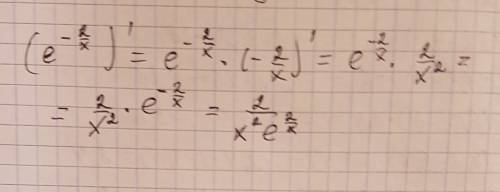 (e^{-\frac{2}{x}})' = e^{-\frac{2}{x}} · (-\frac{2}{x})' = e^{-\frac{2}{x}} · \frac{2}{x^2} =
= \frac{2}{x^2} · e^{-\frac{2}{x}} = \frac{2}{x^2 e^{\frac{2}{x}}}